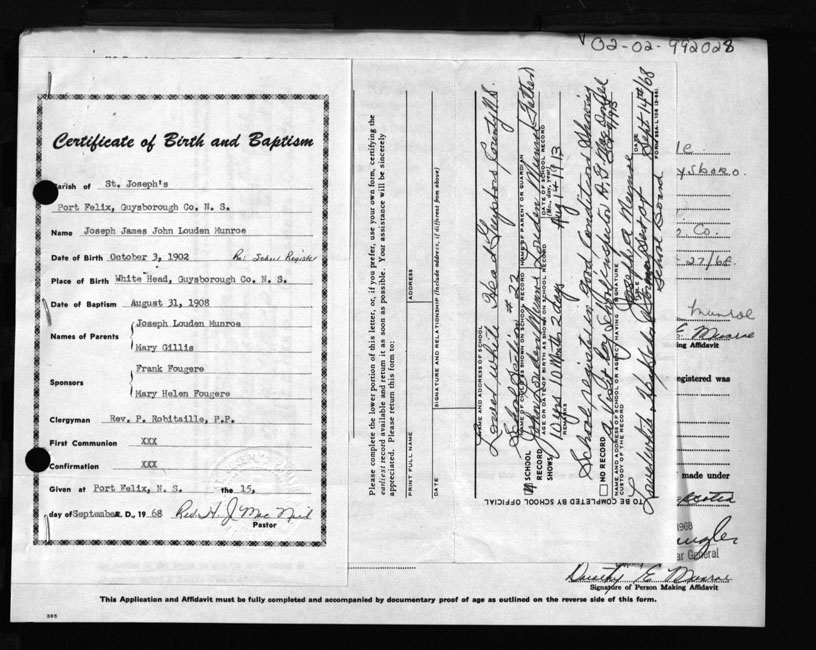 02-02-992028
Certificate of Birth and Baptism
Parish of St. Joseph's
Port Felix, Guysborough Co. N. S.
Name Joseph James John Louden Munroe
Date of Birth October 3, 1902 Re: School Register
Place of Birth White Head, Guysborough Co. N. S.
Date of Baptism August 31, 1908
Names of Parents
Joseph Louden Munroe
Mary Gillis
Sponsors
Frank Fougere
Mary Helen Fougere
Clergyman Rev. P. Robitaille, P.P.
First Communion XXX
Confirmation XXX
Given at Port Felix, N. S. the 15,
day of September A. D., 1968 Rev. H. J. Mac Neil
Pastor
Please complete the lower portion of this letter, or, if you prefer, use your own form, certifying the
earliest record available and return it as soon as possible. Your assistance will be sincerely
appreciated. Please return this form to:
PRINT FULL NAME
ADDRESS
DATE
SIGNATURE AND RELATIONSHIP (Include address, if different from above)
TO BE COMPLETED BY SCHOOL OFFICIAL
NAME AND ADDRESS OF SCHOOL
Lower White Head Guysboro County N.S.
School Section # 22
SCHOOL
RECORD
SHOWS
NAME OF PARENT OR GUARDIAN
John Louden Munro Louden Munro Father
AGE OR DATE OF BIRTH AS SHOWN ON SCHOOL RECORD
DATE OF SCHOOL RECORD
10 yrs 10 Months 2 days Aug 14 1913
REMARKS
School register in good condition showing
a visit by School Inspector A. G. MacDonald
NO RECORD
NAME AND ADDRESS OF SCHOOL OR AGENCY HAVING
CUSTODY OF THE RECORD
SIGNATURE
Munroe
TITLE
School Board
DATE
Sept 4th/68
ysboro.
Co.
27/68.
Munroe
E Munroe
ing Affidavit
egistered was
made under
1968
ar General
Dorothy E Munroe
Signature of Person Making Affidavit
This Application and Affidavit must be fully completed and accompanied by documentary proof of age as outlined on the reverse side of this form.